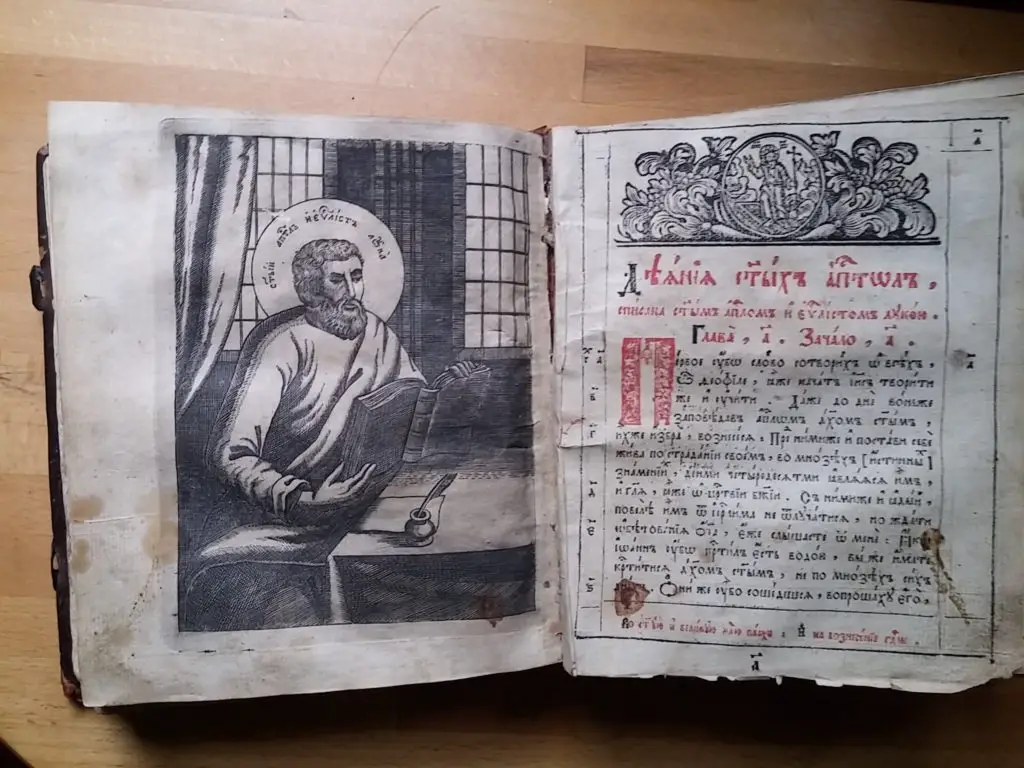 ст҃ый апⷭ҇лъ и еѵⷢ҇лістъ лꙋка
Дѣѧ́нїѧ ст҃ы́хъ а҆пⷭ҇тѡлъ,
спи́сана ст҃ы́мъ а҆пⷭ҇ломъ и҆ є҆ѵⷢ҇лістомъ лꙋко́ю.
Глава̀, а҃. Зача́ло, а҃.
Пе́рвое ᲂу҆́бѡ сло́во сотвори́хъ ѡ҆ всѣ́хъ,
ѽ ѳео́фїле, ꙗ҆̀же нача́тъ і҆и҃съ твори́ти
же и҆ ᲂу҆чи́ти. Да́же до днѐ во́ньже
заповѣ́давъ а҆пⷭ҇лѡмъ дх҃омъ ст҃ы́мъ,
и҆̀хже и҆збра̀, вознесе́сѧ. Пред̾ ни́миже и҆ поста́ви себѐ
жи́ва по страда́нїи свое́мъ, во мно́зѣхъ [и҆́стинныхъ]
зна́менїихъ, де́ньми четы́редесѧтьми ꙗ҆влѧ́ѧсѧ и҆̀мъ,
и҆ гл҃ѧ, ꙗ҆̀же ѡ҆ црⷭ҇твїи бж҃їи. Съ ни́миже и҆ ꙗ҆ды́й,
повелѣ̀ и҆̀мъ ѿ і҆ерⷭ҇ли́ма не ѿлꙋча́тисѧ, но жда́ти
ѡ҆бѣтова́нїѧ ѻ҆́ч҃а, є҆́же слы́шасте ѿ менє̀: Ꙗ҆́кѡ
і҆ѡа́ннъ ᲂу҆́бѡ крⷭ҇ти́лъ є҆́сть водо́й, вы́ же и҆́мате
крⷭ҇ти́тисѧ дх҃омъ ст҃ы́мъ, не по мно́зѣхъ си́хъ
дне́хъ. Ѻ҆ни́ же ᲂу҆́бѡ соше́дшесѧ, вопроша́хꙋ є҆го̀,
Во ст҃ꙋ́ю и҆ вели́кꙋю недⷧ҇ю па́схи. И҆ на вознесе́нїе гдⷭ҇не.
а҃